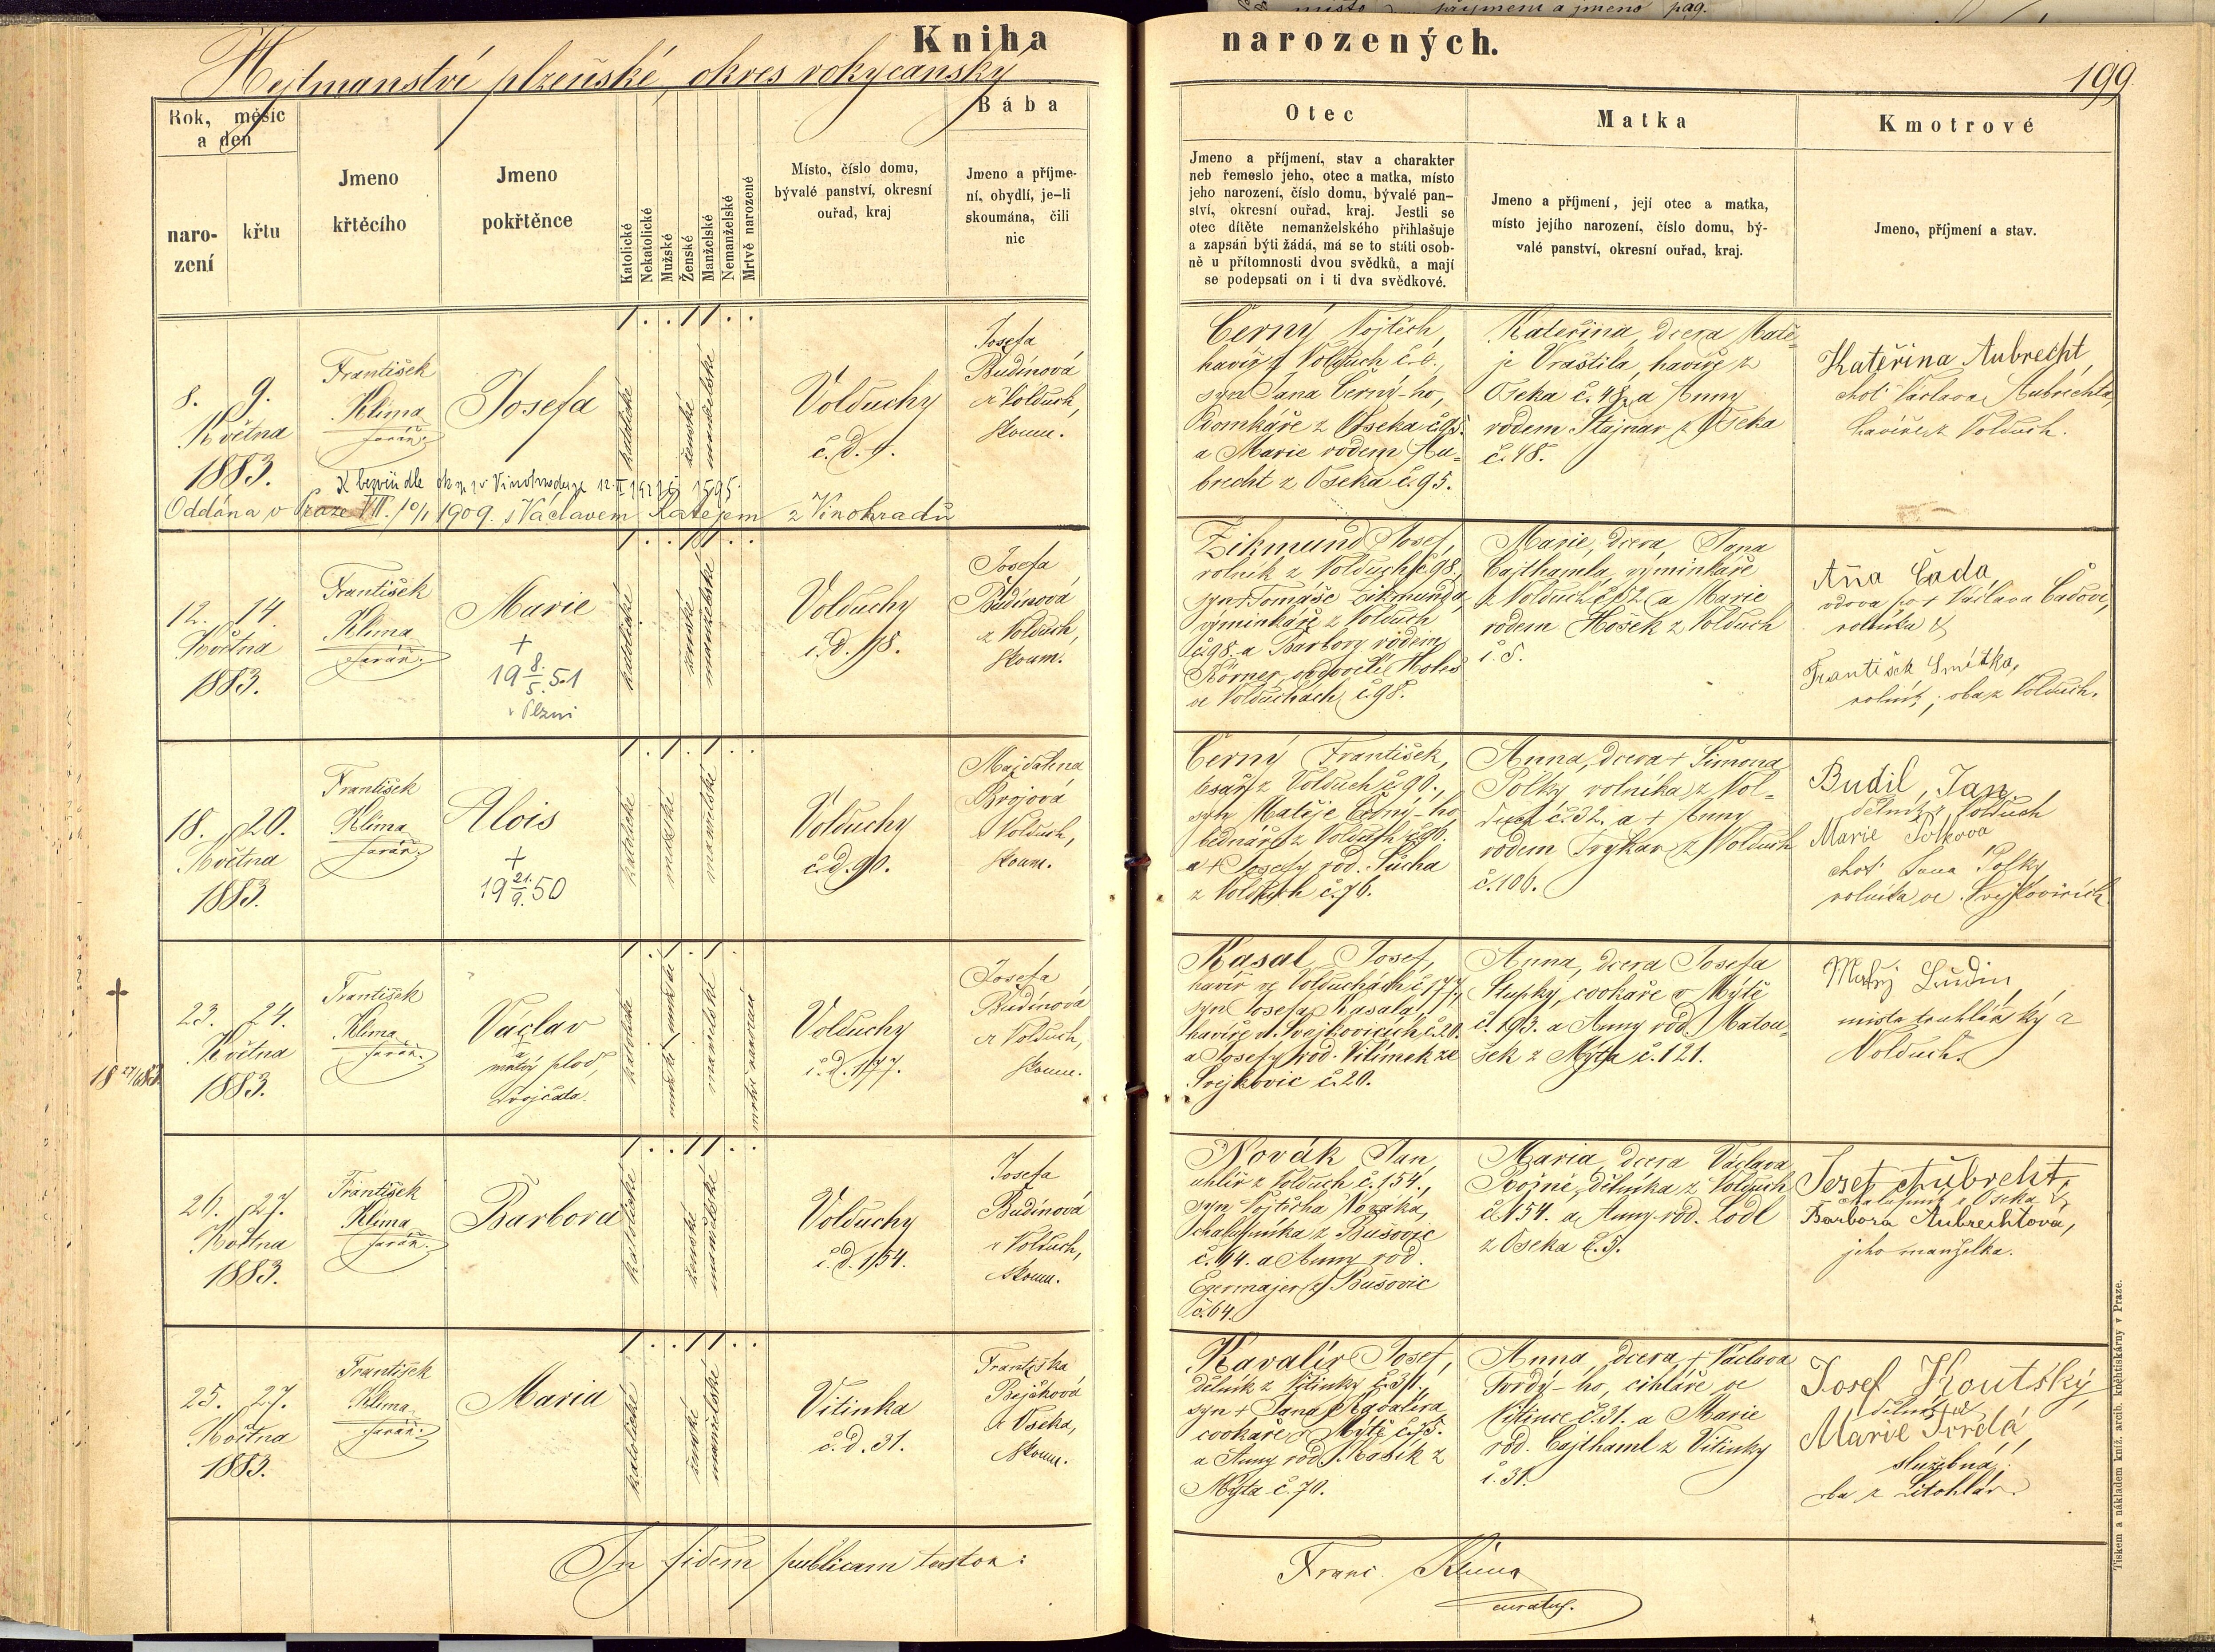 místo příjmení a jméno pag.
Kniha narozených.
Hejtmanství plzeňské, okres rokycanský
199
Rok, měsíc
a den
naro-
zení
křtu
Jmeno
křtěcího
Jmeno
pokřtěnce
Katolické
Nekatolické
Mužské
Ženské
Manželské
Nemanželské
Mrtvě narozené
Místo, číslo domu,
bývalé panství, okresní
ouřad, kraj
Bába
Jmeno a příjme-
ní, obydlí, je-li
skoumána, čili
nic
Otec
Jmeno a příjmení, stav a charakter
neb řemeslo jeho, otec a matka, místo
jeho narození, číslo domu, bývalé pan-
ství, okresní ouřad, kraj. Jestli se
otec dítěte nemanželského přihlašuje
a zapsán býti žádá, má se to státi osob-
ně u přítomnosti dvou svědků, a mají
se podepsati on i ti dva svědkové.
Matka
Jmeno a příjmení, její otec a matka,
místo jejího narození, číslo domu, bý-
valé panství, okresní ouřad, kraj.
Kmotrové
Jmeno, příjmení a stav.
8. 9.
Května
1883.
František
Klima
farář.
Josefa
katolické
ženské
manželské
Volduchy
č. d. 9.
Josefa
Budínová
z Volduch,
skoum.
Oddána v Praze VII. 10/1 1909. s Václavem Katejem z Vinohradů
Černý Vojtěch,
havíř z Volduch
syn Jana Černý-ho,
domkáře z Oseka č. 95.
a Marie rodem Au-
brecht z Oseka č. 95.
Kateřina, dcera Matě-
je Vraštila, havíře z
Oseka č. 48. a Anny
rodem Štajnar z Oseka
č. 48.
Kateřina Aubrecht,
choť Václava Aubrechta,
havíře z Volduch.
12. 14.
Května
1883.
František
Klima
farář.
Marie
+
19 8./5. 51
v Plzni
katolické
ženské
manželské
Volduchy
č. d. 98.
Josefa
Budínová
z Volduch,
skoum.
Zikmund Josef,
rolník z Volduch č. 98,
syn + Tomáše Zikmunda,
výminkáře z Volduch
č. 98. a Barbory rodem
Körner,
ve Volduchách č. 98.
Marie, dcera Jana
Cajthamla, výminkáře
z Volduch č. 52. a Marie
rodem Hošek z Volduch
č. 5.
Aňa Čada,
vdova po + Václavu Čadovi,
rolníku &
František Smitka,
rolník; oba z Volduch.
18. 20.
Května
1883.
František
Klima
farář.
Alois
+
19 21./9. 50
katolické
mužské
manželské
Volduchy
č. d. 90.
Majdalena
Brojová
z Volduch,
skoum.
Černý František,
tesař z Volduch č. 90.,
syn Matěje Černý-ho
bednáře z Volduch č. 90.
a + Josefy rod. Suchá
z Volduch č. 76.
Anna, dcera + Šimona
Polky rolníka z Vol-
duch č. 32. a + Anny
rodem Trykar z Volduch
č. 106.
Budil, Jan,
dělník z Volduch
Marie Polková
choť Jana Polky
rolníka ve Svejkovicích
+
18 27/6 83
23. 24.
Května
1883.
František
Klima
farář.
Václav
a
mrtvý plod,
dvojčata.
katolické
mužské, mužské
manželské
mrtvě narozené
Volduchy
č. d. 177.
Josefa
Budínová
z Volduch,
skoum.
Kasal Josef,
havíř ve Volduchách č. 177,
syn Josefa Kasala,
havíře ve Svejkovicích č. 20.
a Josefy rod. Vilímek ze
Svejkovic č. 20.
Anna, dcera Josefa
Slupky, cvokaře v Mýtě
č. 193. a Anny rod. Matou-
šek z Mýta č. 121.
Matěj Sudin,
mistr truhlářský z
Volduch.
26. 27.
Května
1883.
František
Klima
farář.
Barbora
katolické
ženské
manželské
Volduchy
č. d. 154.
Josefa
Budínová
z Volduch,
skoum.
Novák Jan,
uhlíř z Volduch č. 154.,
syn Vojtěcha Nováka,
chalupníka z Bušovic
č. 64. a Anny rod.
Egermajer z Bušovic
č. 64.
Maria, dcera Václava
Svojné, dělníka z Volduch
č. 154. a Anny rod. Lodl
z Oseka č. 5.
Josef Aubrecht,
chalupník z Oseka &
Barbora Aubrechtová,
jeho manželka.
25. 27.
Května
1883.
František
Klima
farář.
Maria
katolické
ženské
manželské
Vitinka
č. d. 31.
Františka
Rejšková
z Oseka,
skoum.
Kavalír Josef,
dělník z Vitinky č. 31,
syn + Jana Kavalíra
cvokaře v Mýtě č. 75.
a Anny rod. Kasík z
Mýta č. 70.
Anna, dcera + Václava
Tvrdý-ho, cihláře ve
Vitince č. 31. a Marie
rod. Cajthaml z Vitinky
č. 31.
Josef Koutský,
dělník &
Marie Tvrdá,
služebná;
oba z Litohlav.
In fidem publicam testor:
Franc. Klima
curatus.
Tiskem a nákladem kníž. arcib. knihtiskárny v Praze.